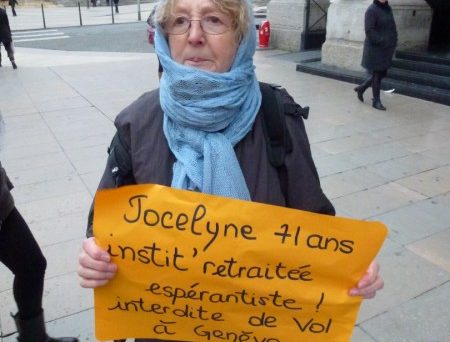 Jocelyne 71 ans
instit' retraitée
espérantiste !
interdite de Vol
à Genève